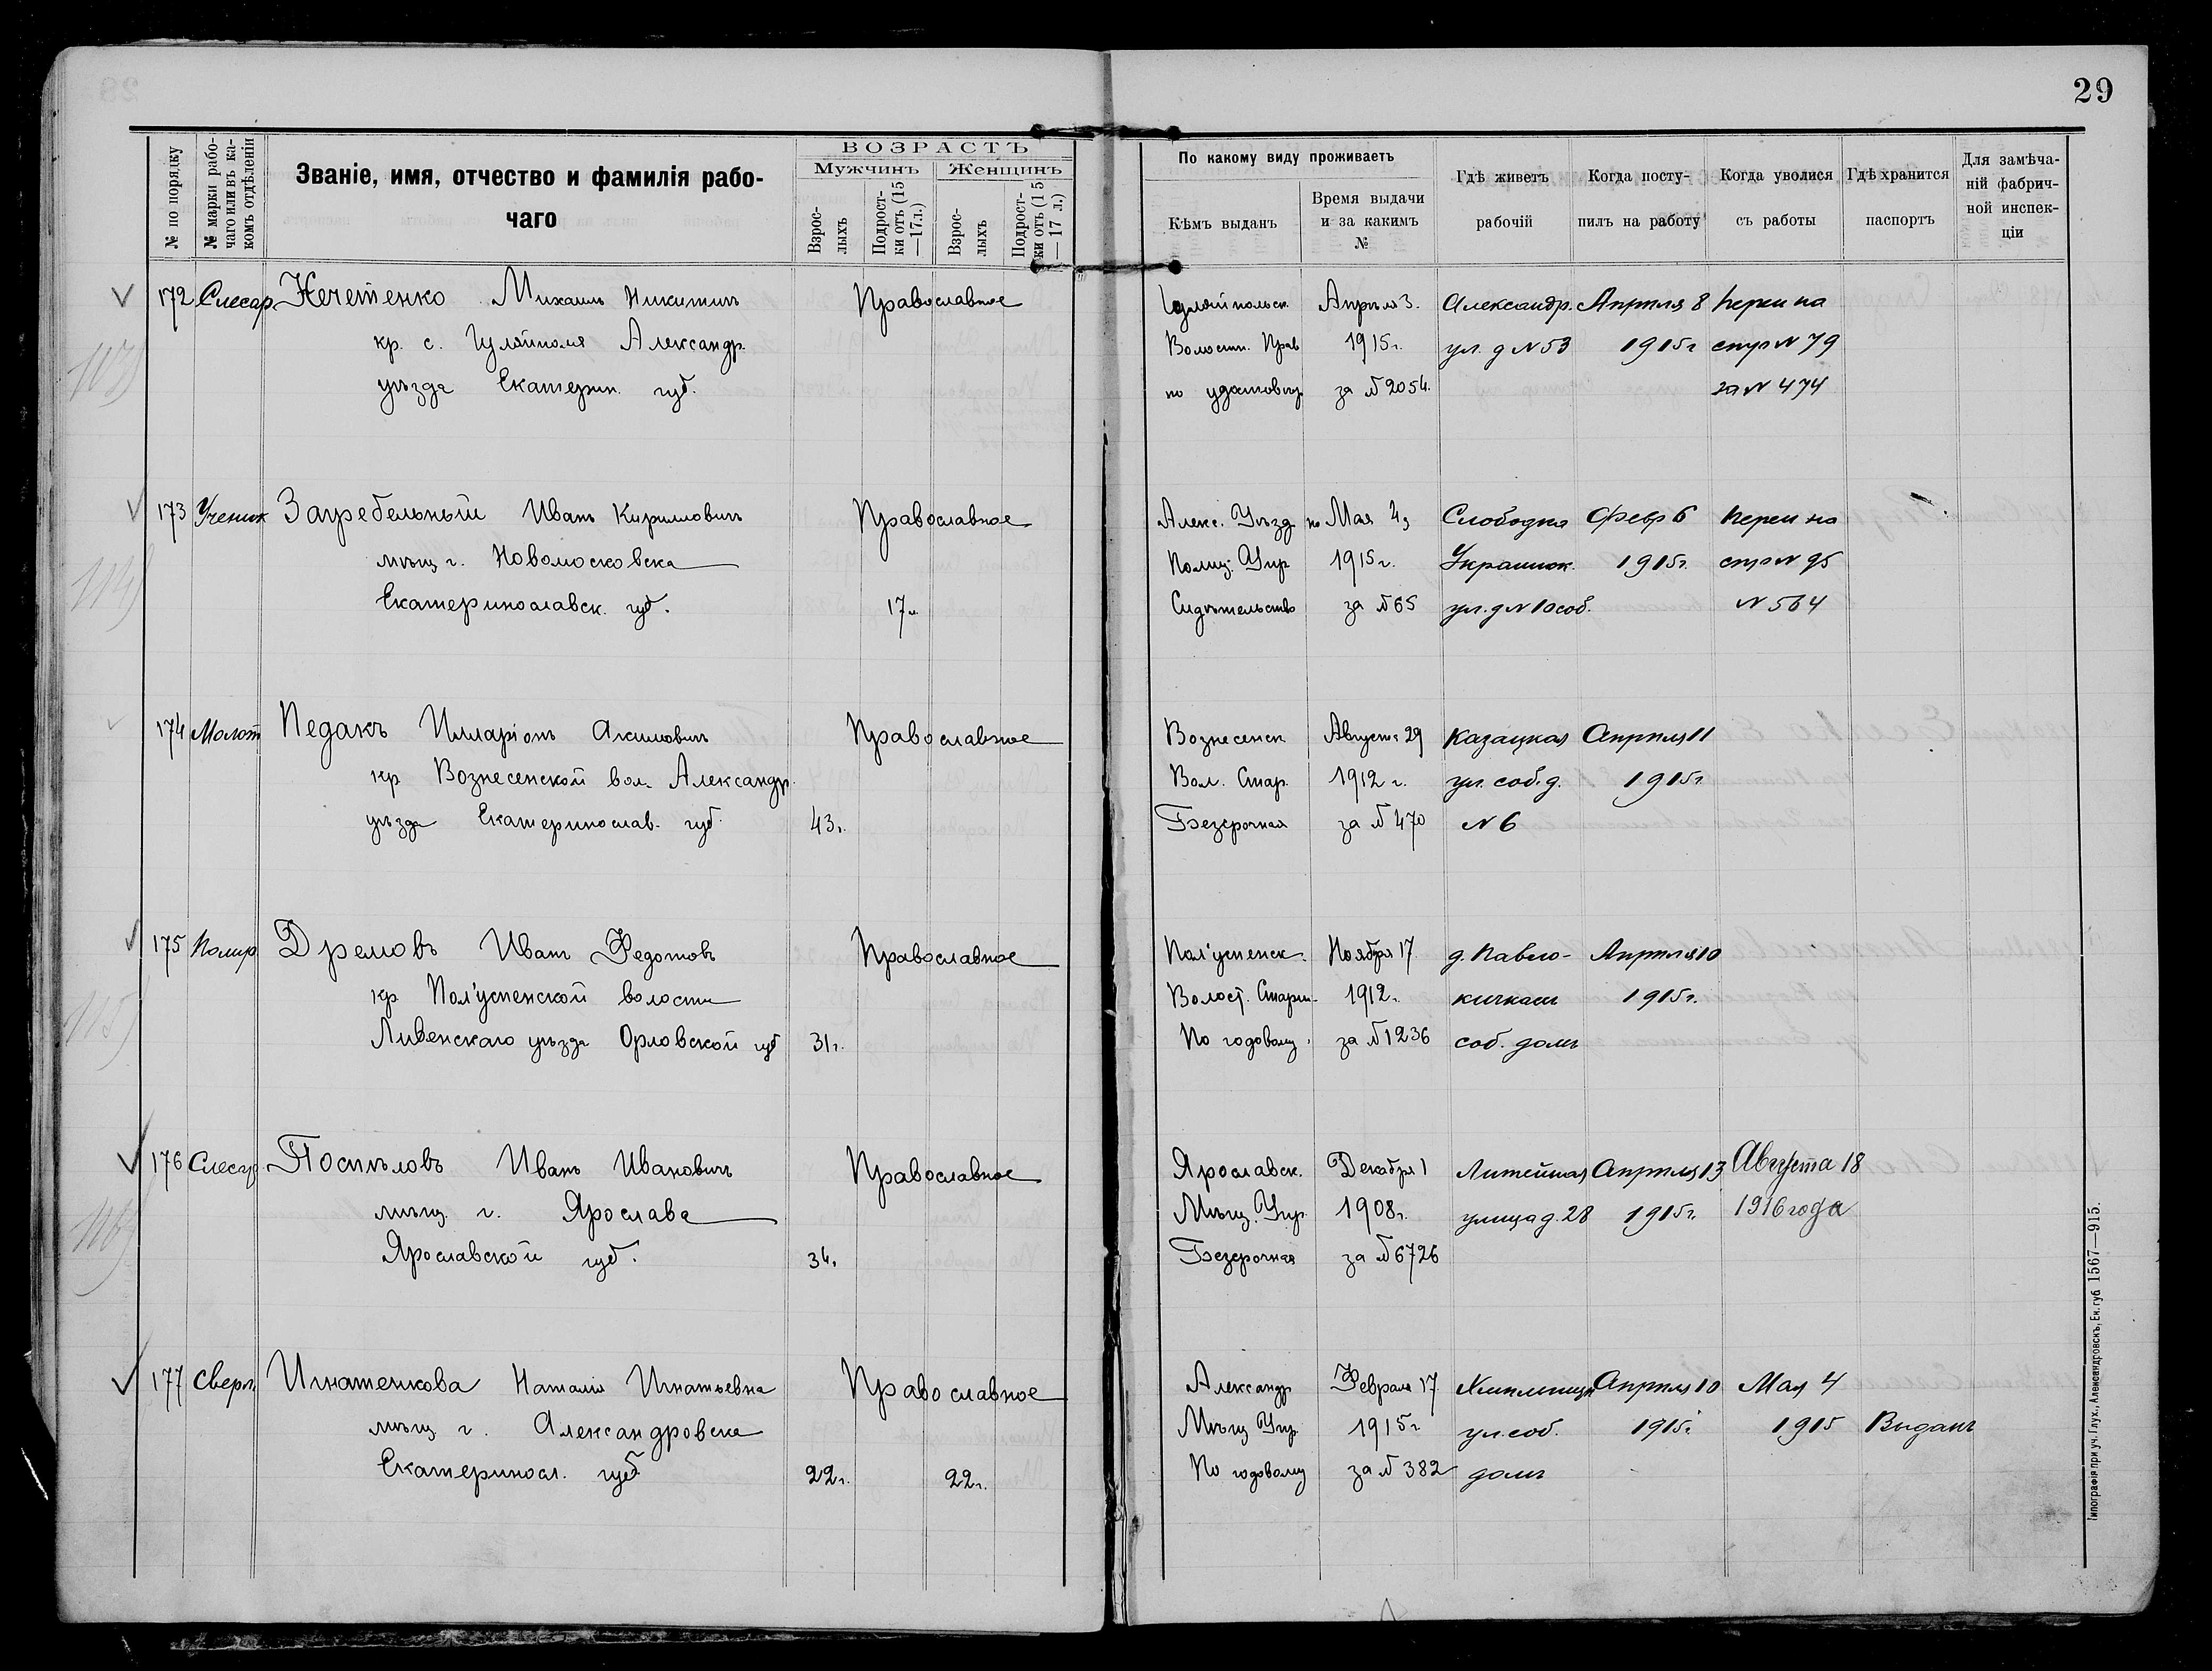 29
№ по порядку
№ марки рабо-
чаго или въ ка-
комъ отдѣленіи
Званіе, имя, отчество и фамилія рабо-
чаго
ВОЗРАСТЪ
Мужчинъ
Женщинъ
Взрос-
лыхъ
Подрост-
ки отъ (15
—17 л.)
Взрос-
лыхъ
Подрост-
ки отъ (15
— 17 л.)
По какому виду проживаетъ
Кѣмъ выданъ
Время выдачи
и за какимъ
№
Гдѣ живетъ
рабочій
Когда посту-
пилъ на работу
Когда уволися
съ работы
Гдѣ хранится
паспортъ
Для замѣча-
ній фабрич-
ной инспек-
ціи
172 Слесар. Нечетенко Михаилъ Никитинъ Православное Гуляйпольск. Апрѣля 3. Александр. Апрѣля 8 Перен на
кр. с. Гуляйполя Александр. Волостн. Прав 1915 г. ул. д N 53 1915 г стр N 79
уѣзда Екатерин. губ. по удостовѣр за № 2054. за N 474
113)
173 Ученик Загребельный Иванъ Кирилловичъ Православное Алекс. Уѣзд по Мая 4, Слободка Февр 6 Перен на
мѣщ г. Новомосковска Полиц. Упр 1915 г. Украинск. 1915 г. стр N 95
Екатеринославск. губ. 17 л. Свдѣтельство за № 65 ул. д N 10 соб. N 564
114)
174 Молот Педакъ Илларіонъ Акимовичъ Православное Вознесенск Август. 29 Казацкая Апрѣля 11
кр Вознесенской вол. Александр. Вол. Стар. 1912 г. ул. соб. д. 1915 г.
уѣзда Екатеринослав. губ. 43 г. Безсрочная за № 470 N 6
175 Полир Дремовъ Иванъ Федотовъ Православное Пол'успенск. Ноября 17. д. Павло- Апрѣля 10
кр Пол'успенской волости Волост. Старш. 1912 г. кичкасъ 1915 г.
Ливенскаго уѣзда Орловской губ 31 г. По годовому за № 1236 соб. домъ
115)
176 Слесар. Поспѣловъ Иванъ Ивановичъ Православное Ярославск. Декабря 1 Литейная Апрѣля 13 Августа 18
мѣщ. г. Ярослава Мѣщ. Упр. 1908 г. улица д. 28 1915 г. 1916 года
Ярославской губ. 34. Безсрочная за № 6726
116)
177 Сверл. Игнатенкова Наталія Игнатьевна Православное Александр Февраля 17. Апрѣля 10 Мая 4
мѣщ г. Александровска Мѣщ Упр. 1915 г. ул. соб. 1915 г. 1915 Выданъ
Екатеринос. губ. 22 г. 22 г. По годовому за № 382 домъ
Типографія при уч. Глух., Александровскъ, Ек. губ. 1567—915.